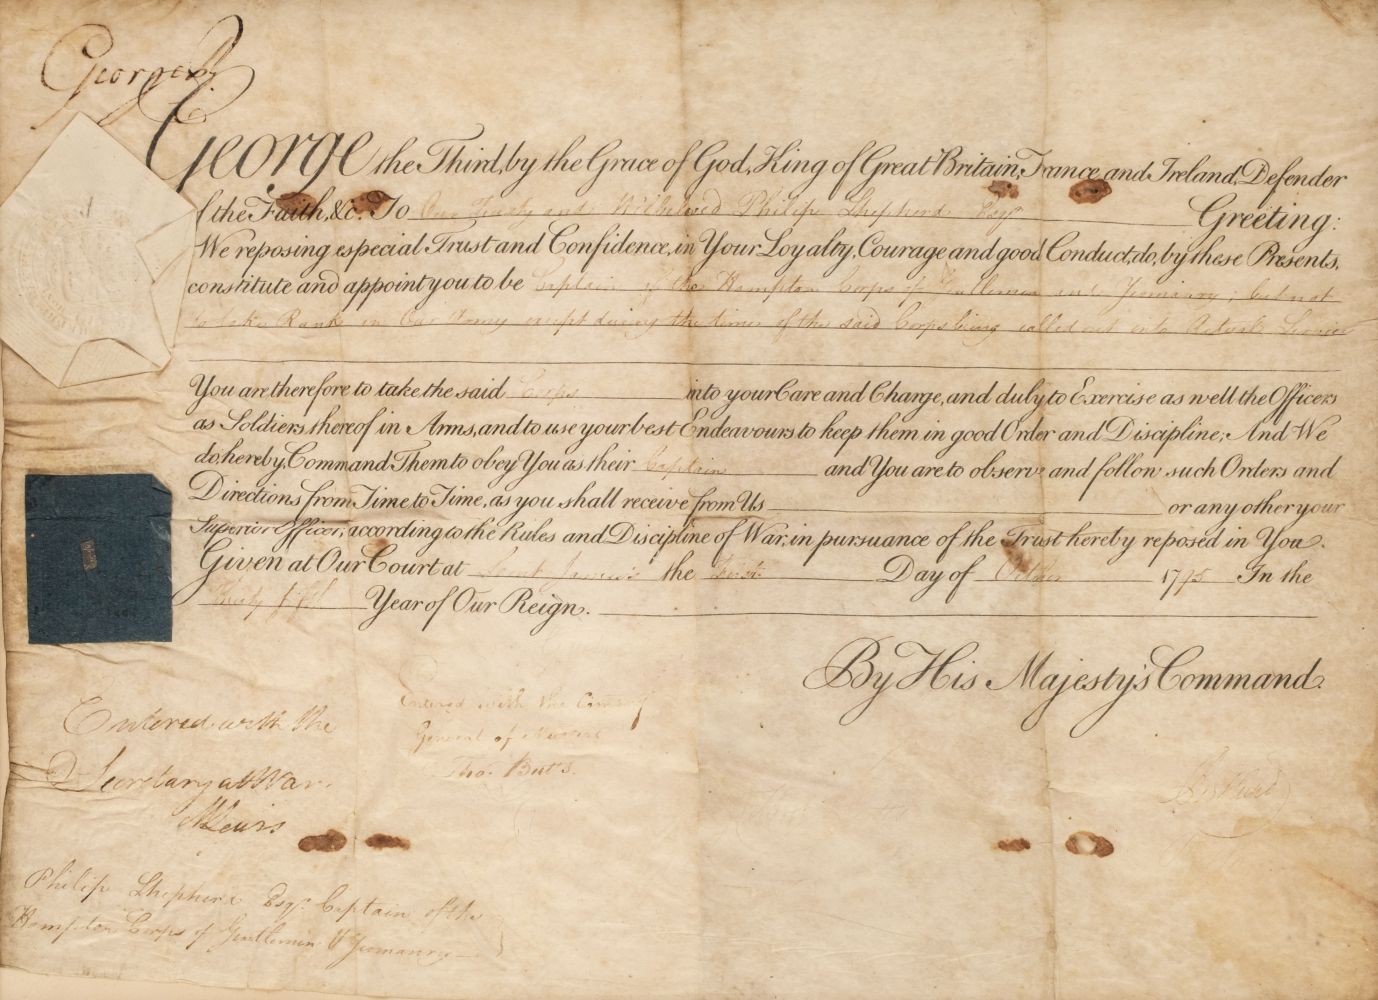 George R
George the Third, by the Grace of God, King of Great Britain, France and Ireland, Defender
of the Faith, &c. To Our Trusty and Wellbeloved Philip Shepherd Esqr. Greeting:
We reposing especial Trust and Confidence, in Your Loyalty, Courage and good Conduct, do, by these Presents,
constitute and appoint you to be Captain of the Hampton Corps of Gentlemen and Yeomanry; but not
to take Rank in Our Army except during the time of the said Corps being called out into Actual Service
You are therefore to take the said Corps into your Care and Charge, and duly to Exercise as well the Officers
as Soldiers thereof in Arms, and to use your best Endeavours to keep them in good Order and Discipline; And We
do hereby Command Them to obey You as their Captain and You are to observe and follow such Orders and
Directions from Time to Time, as you shall receive from Us or any other your
Superior Officer, according to the Rules and Discipline of War, in pursuance of the Trust hereby reposed in You.
Given at Our Court at Saint James's the First Day of October 1795 In the
Thirty fifth Year of Our Reign.
By His Majesty's Command.
Entered with the
Secretary at War
MLewis
Entered with the Commy
General of Musters
Thos. Butts.
Philip Shepherd Esqr. Captain of the
Hampton Corps of Gentlemen & Yeomanry